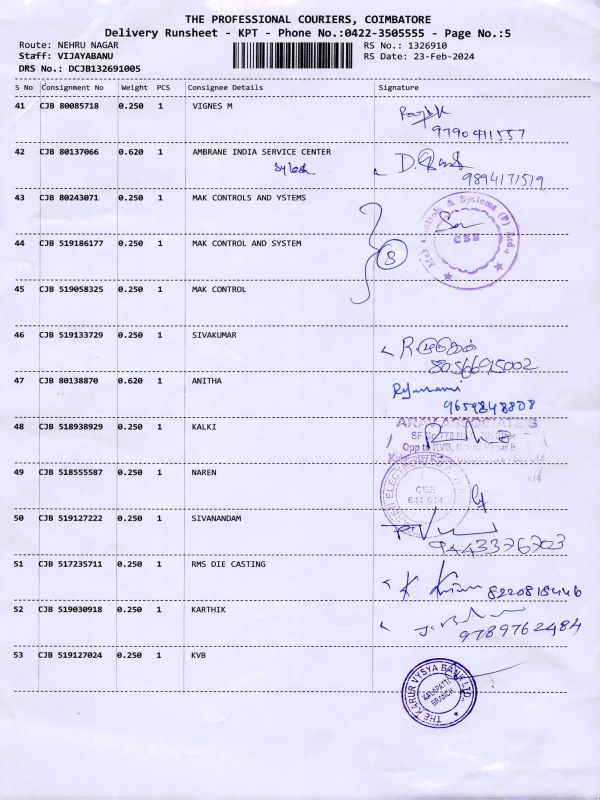 THE PROFESSIONAL COURIERS, COIMBATORE
Delivery Runsheet - KPT - Phone No.:0422-3505555 - Page No.:5
Route: NEHRU NAGAR
Staff: VIJAYABANU
DRS No.: DCJB132691005
RS No.: 1326910
RS Date: 23-Feb-2024
S No Consignment No Weight PCS Consignee Details Signature
41 CJB 80085718 0.250 1 VIGNES M
9790411557
42 CJB 80137066 0.620 1 AMBRANE INDIA SERVICE CENTER
9894171519
43 CJB 80243071 0.250 1 MAK CONTROLS AND YSTEMS
Mak Controls & Systems (P) Ltd.,
CBE
44 CJB 519186177 0.250 1 MAK CONTROL AND SYSTEM
8
45 CJB 519058325 0.250 1 MAK CONTROL
46 CJB 519133729 0.250 1 SIVAKUMAR
8056695002
47 CJB 80138870 0.620 1 ANITHA
9659848808
48 CJB 518938929 0.250 1 KALKI
Opp to KVB,
49 CJB 518555587 0.250 1 NAREN
CBE
641 014
50 CJB 519127222 0.250 1 SIVANANDAM
9443376703
51 CJB 517235711 0.250 1 RMS DIE CASTING
8220818446
52 CJB 519030918 0.250 1 KARTHIK
9789762484
53 CJB 519127024 0.250 1 KVB
THE KARUR VYSYA BANK LTD.,
KALAPATTI
BRANCH